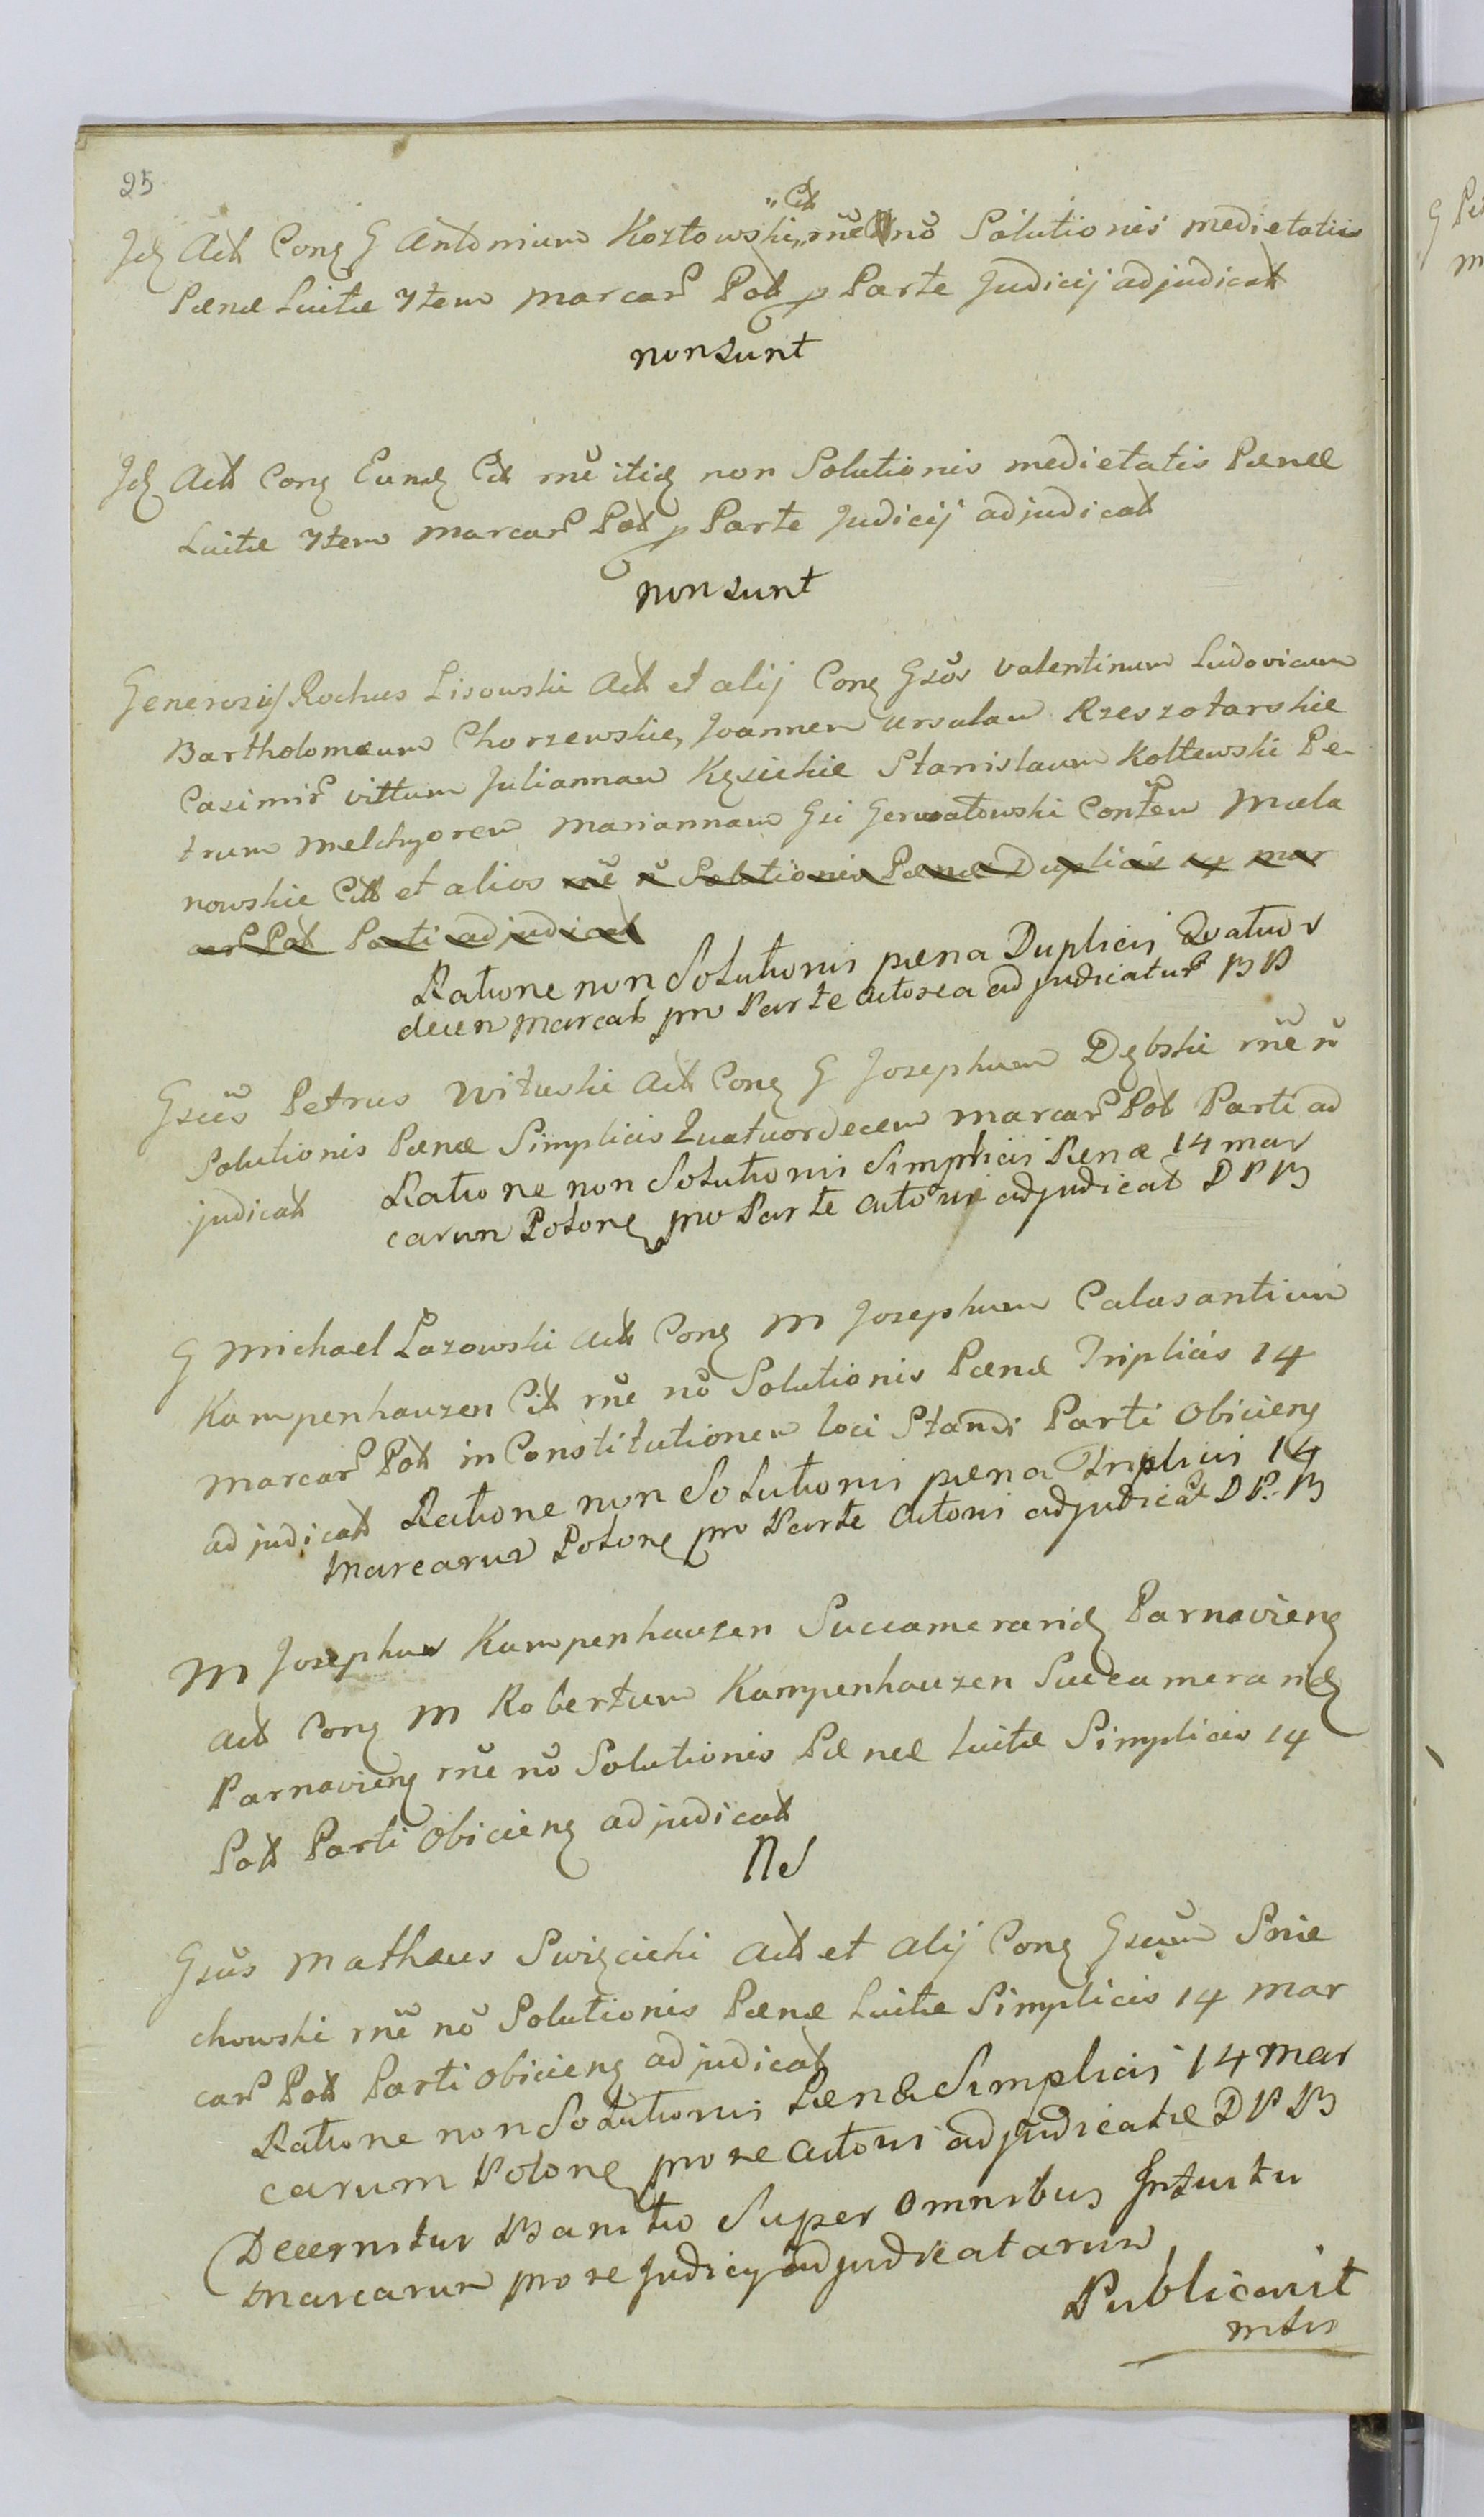 25
Jdę Actt Cong G Antonium Kozłowski „Citt„ rne no Solutionis medietatis
Pænæ Luitæ 7tem marcar Poll p Parte Judicij adjudicatt
non sunt
Jdę Actt Cong Eundę Citt rne itidę non Solutionis medietatis Pænæ
Luitæ 7tem marcar Poll p Parte Judicij adjudicatt
non sunt
Generosus Rochus Lisowski Actt et alij Cong Gsos Valentinum Ludovicum
Bartholomæum Chorzewskie, Joannem Ursulam Rzeszotarskie
Casimir Vittum Juliannam Kęsickie Stanislaum Koltewski Pe-
trum Melchyorem Mariannam Gsi Gerwatowski Conten Mæla
nowskie Citt et alios rne n Solutionis Pænæ Duplicis 14 mar
car Poll Parti adjudicatt
Ratione non Solutionis pæna Duplicis Quatuor
decem Marcar pro Parte Actorea adjudicatur BB
Gsus Petrus Wituski Actt Cong G Josephum Dębski rne n
Solutionis Pænæ Simplicis Quatuordecem marcar Poll Parti ad
judicatt Ratione non Solutionis Simplicis Pænæ 14 mar
carum Polonę pro Parte Actoris adjudicat DPB
G Michael Lazowski Actt Cong M Josephum Calasantium
Kampenhauzen Citt rne no Solutionis Pænæ Triplicis 14
marcar Poll in Constitutionem loci Standi Parti Obiicieng
adjudicatt Ratione non Solutionis pæna Triplicis 14
Marcarum Polonę pro Parte Actoris adjudicat DPB
M Josephus Kampenhauzen Succameraridę Parnavieng
Actt Cong M Robertum Kampenhauzen Succameraridę
Parnavieng rne no Solutionis Pænæ Luitæ Simplicis 14
Poll Parti Obiicieng adjudicatt
NS
Gsus Mathæus Swięcicki Actt et alij Cong Gsum Snie
chowski rne no Solutionis Pænæ Luitæ Simplicis 14 mar
car Poll Parti Obiicieng adjudicatt
Ratione non Solutionis Pænæ Simplicis 14 Mar
carum Polonę pro re Actoris adjudicatæ DPB
Decernitur Banitio Super Omnibus Intuitu
Marcarum pro re Judicy adjudicatarum
Publicavit
mtis